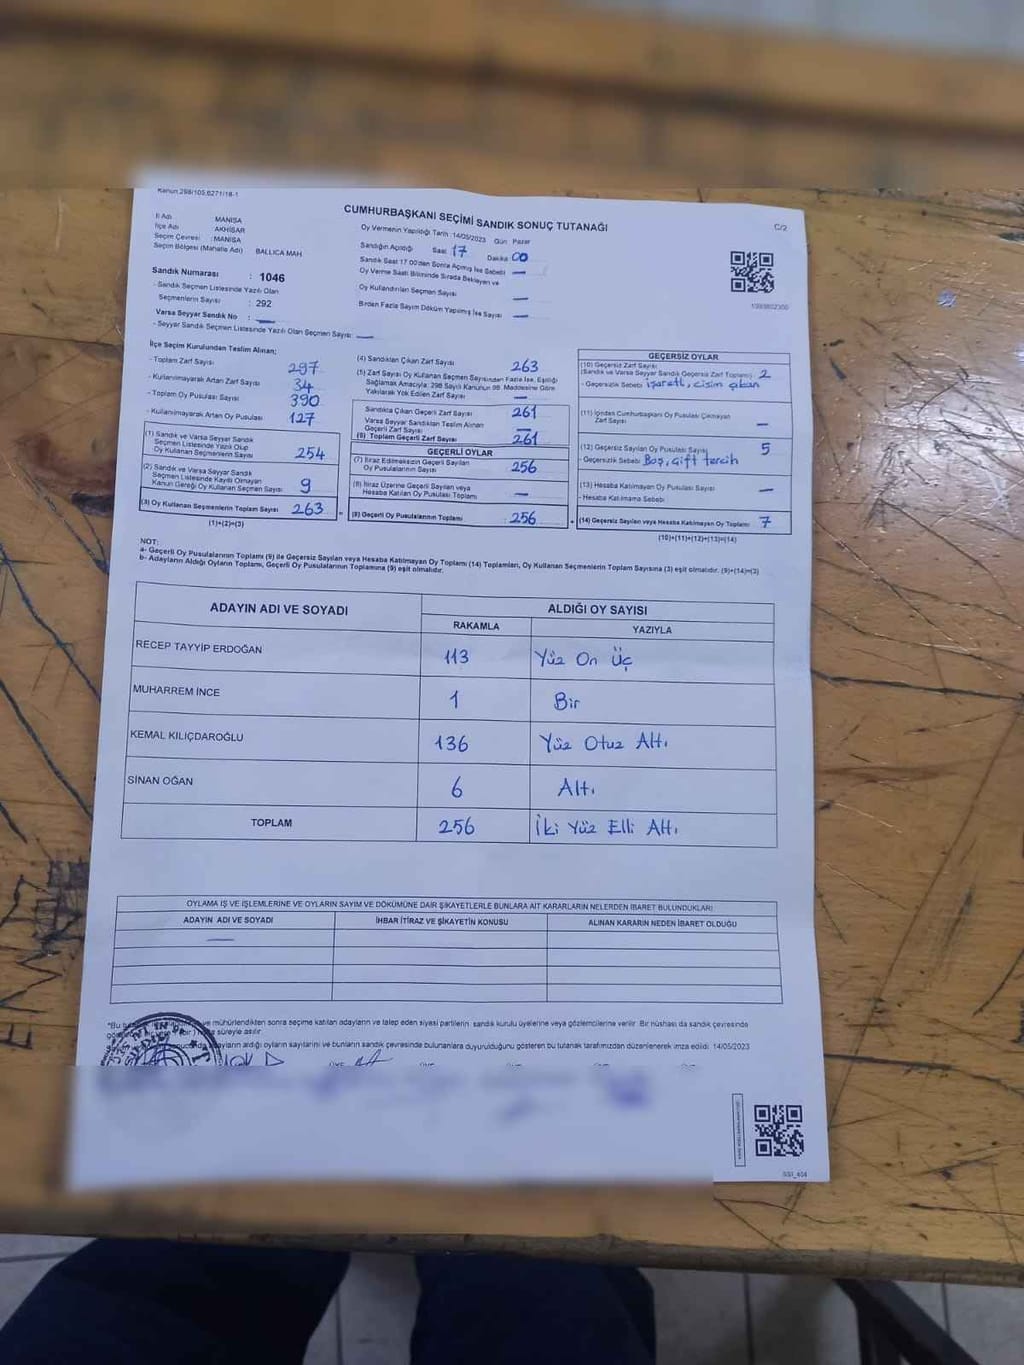 Kanun 298/105,6271/18-1
CUMHURBAŞKANI SEÇİMİ SANDIK SONUÇ TUTANAĞI
C/2
İl Adı : MANİSA
İlçe Adı : AKHİSAR
Seçim Çevresi : MANİSA
Seçim Bölgesi (Mahalle Adı) BALLICA MAH
Oy Vermenin Yapıldığı Tarih : 14/05/2023 Gün Pazar
Sandığın Açıldığı Saat 17 Dakika 00
Sandık Saat 17.00'den Sonra Açılmış İse Sebebi —
Oy Verme Saati Bitiminde Sırada Bekleyen ve
Oy Kullandırılan Seçmen Sayısı —
Birden Fazla Sayım Döküm Yapılmış İse Sayısı —
Sandık Numarası : 1046
- Sandık Seçmen Listesinde Yazılı Olan
Seçmenlerin Sayısı : 292
Varsa Seyyar Sandık No : —
- Seyyar Sandık Seçmen Listesinde Yazılı Olan Seçmen Sayısı —
İlçe Seçim Kurulundan Teslim Alınan;
- Toplam Zarf Sayısı 297
- Kullanılmayarak Artan Zarf Sayısı 34
- Toplam Oy Pusulası Sayısı 390
- Kullanılmayarak Artan Oy Pusulası 127
(1) Sandık ve Varsa Seyyar Sandık
Seçmen Listesinde Yazılı Olup
Oy Kullanan Seçmenlerin Sayısı 254
(2) Sandık ve Varsa Seyyar Sandık
Seçmen Listesinde Kayıtlı Olmayan
Kanun Gereği Oy Kullanan Seçmen Sayısı 9
(3) Oy Kullanan Seçmenlerin Toplam Sayısı 263
(1)+(2)=(3)
(4) Sandıktan Çıkan Zarf Sayısı 263
(5) Zarf Sayısı Oy Kullanan Seçmen Sayısından Fazla İse, Eşitliği
Sağlamak Amacıyla; 298 Sayılı Kanunun 98. Maddesine Göre
Yakılarak Yok Edilen Zarf Sayısı —
Sandıkta Çıkan Geçerli Zarf Sayısı 261
Varsa Seyyar Sandıktan Teslim Alınan
Geçerli Zarf Sayısı —
(6) Toplam Geçerli Zarf Sayısı 261
GEÇERLİ OYLAR
(7) İtiraz Edilmeksizin Geçerli Sayılan
Oy Pusulalarının Sayısı 256
(8) İtiraz Üzerine Geçerli Sayılan veya
Hesaba Katılan Oy Pusulası Toplamı —
(9) Geçerli Oy Pusulalarının Toplamı : 256
GEÇERSİZ OYLAR
(10) Geçersiz Zarf Sayısı
(Sandık ve Varsa Seyyar Sandık Geçersiz Zarf Toplamı) 2
- Geçersizlik Sebebi işaretli, cisim çıkan
(11) İçinden Cumhurbaşkanı Oy Pusulası Çıkmayan
Zarf Sayısı —
(12) Geçersiz Sayılan Oy Pusulası Sayısı 5
- Geçersizlik Sebebi Boş, çift tercih
(13) Hesaba Katılmayan Oy Pusulası Sayısı —
- Hesaba Katılmama Sebebi
(14) Geçersiz Sayılan veya Hesaba Katılmayan Oy Toplamı 7
(10)+(11)+(12)+(13)=(14)
NOT:
a- Geçerli Oy Pusulalarının Toplamı (9) ile Geçersiz Sayılan veya Hesaba Katılmayan Oy Toplamı (14) Toplamları, Oy Kullanan Seçmenlerin Toplam Sayısına (3) eşit olmalıdır. (9)+(14)=(3)
b- Adayların Aldığı Oyların Toplamı, Geçerli Oy Pusulalarının Toplamına (9) eşit olmalıdır.
ADAYIN ADI VE SOYADI ALDIĞI OY SAYISI
RAKAMLA YAZIYLA
RECEP TAYYİP ERDOĞAN 113 Yüz On Üç
MUHARREM İNCE 1 Bir
KEMAL KILIÇDAROĞLU 136 Yüz Otuz Altı
SİNAN OĞAN 6 Altı
TOPLAM 256 İki Yüz Elli Altı
OYLAMA İŞ VE İŞLEMLERİNE VE OYLARIN SAYIM VE DÖKÜMÜNE DAİR ŞİKAYETLERLE BUNLARA AİT KARARLARIN NELERDEN İBARET BULUNDUKLARI
ADAYIN ADI VE SOYADI İHBAR İTİRAZ VE ŞİKAYETİN KONUSU ALINAN KARARIN NEDEN İBARET OLDUĞU
—
*Bu ve mühürlendikten sonra seçime katılan adayların ve talep eden siyasi partilerin sandık kurulu üyelerine veya gözlemcilerine verilir. Bir nüshası da sandık çevresinde
süreyle asılır.
aldığı oyların sayılarını ve bunların sandık çevresinde bulunanlara duyurulduğunu gösteren bu tutanak tarafımızdan düzenlenerek imza edildi. 14/05/2023